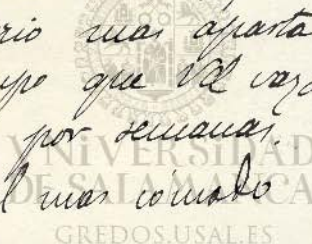 rio mas aparta
po que Vd vaya
por semanas.
l mas cómodo
VNiVERSiDAD
DE SALAMANCA
GREDOS.USAL.ES